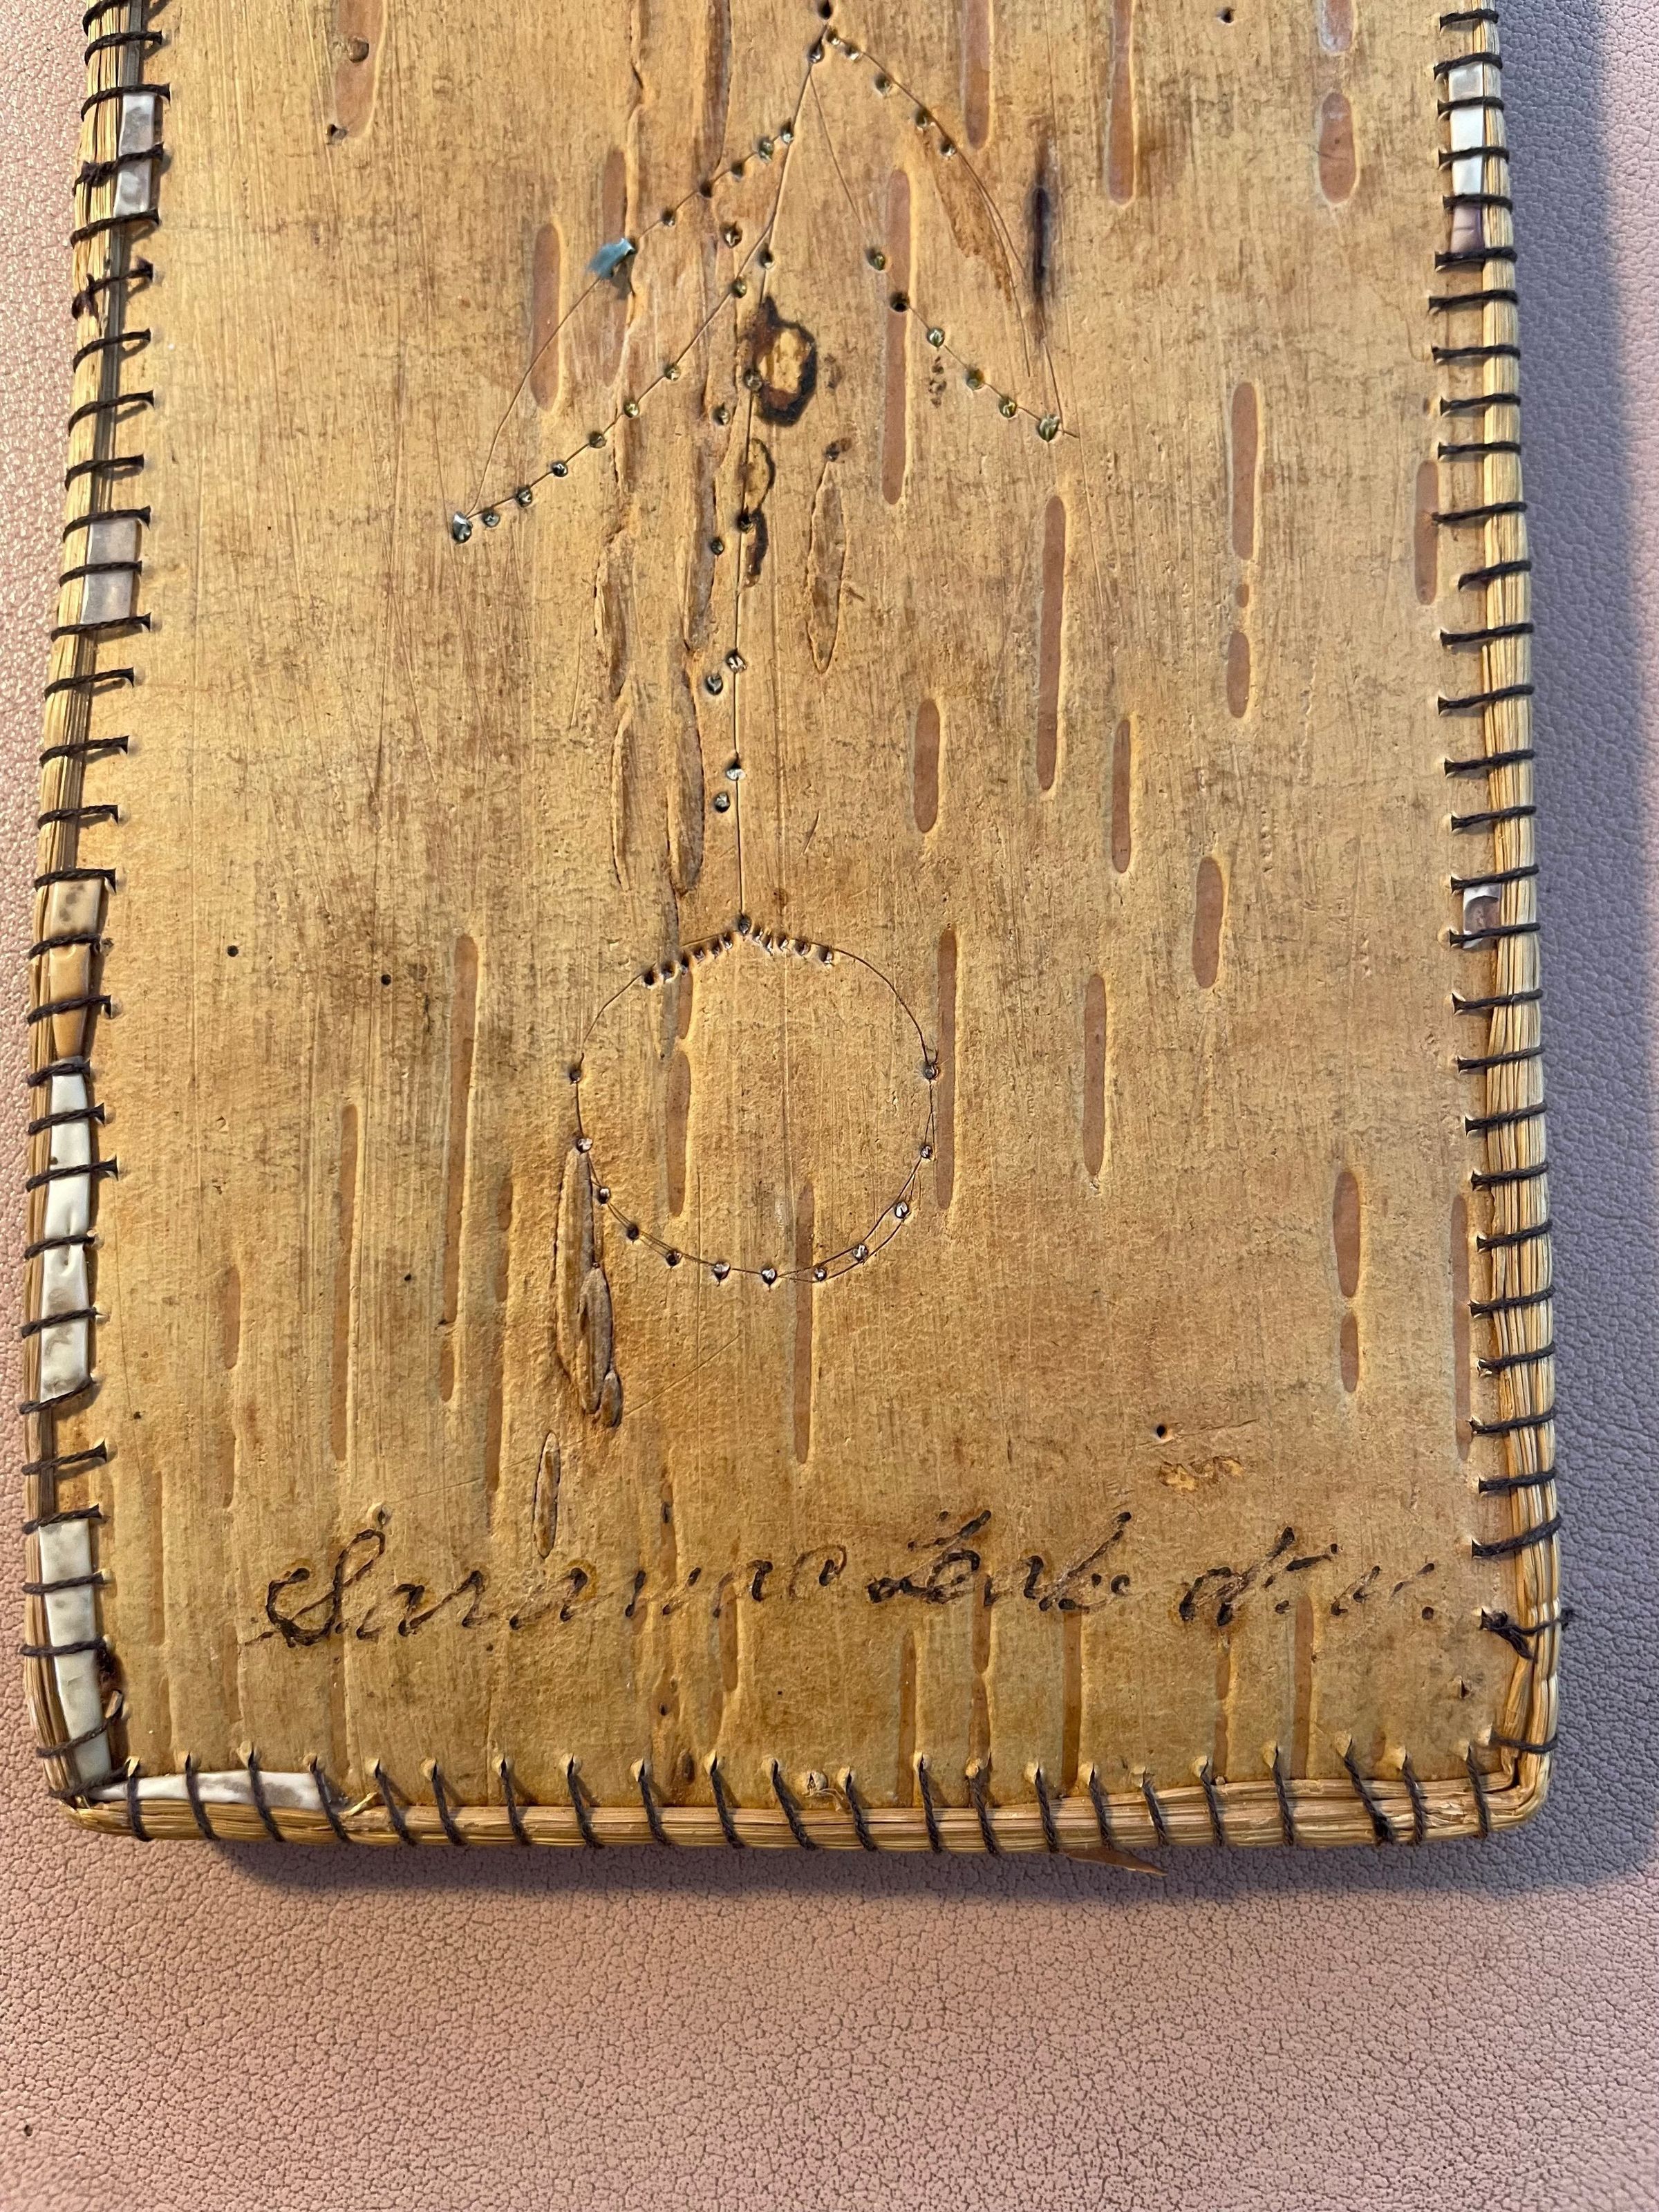 Saranac Lake N.Y.